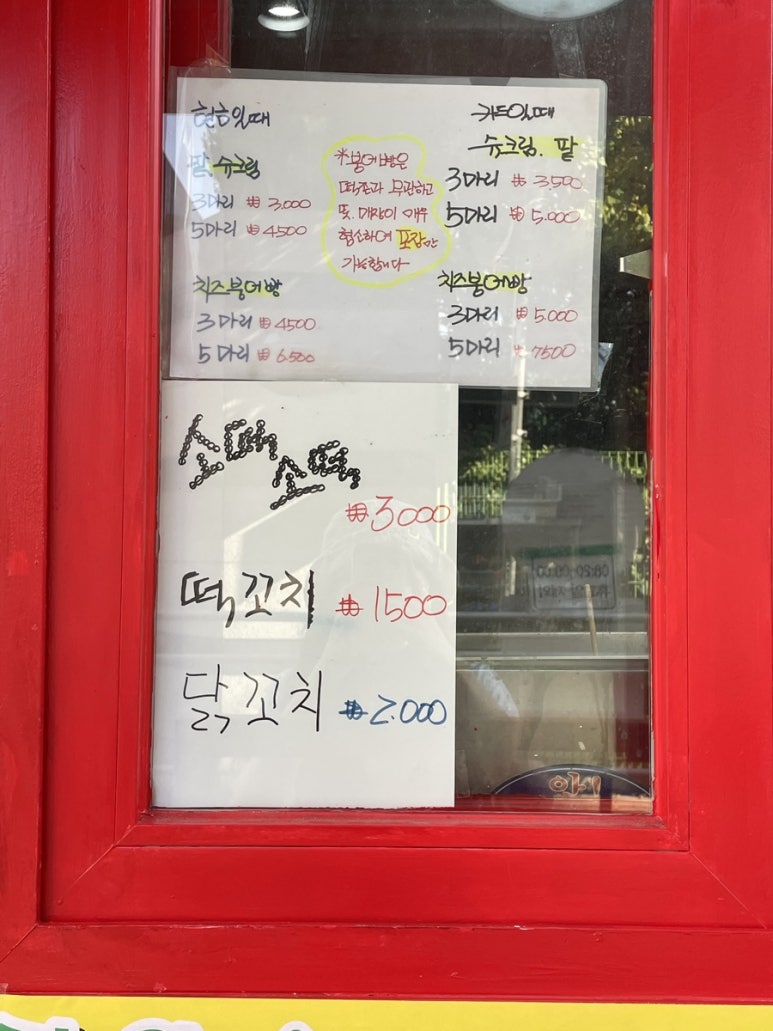 현금일때
팥.슈크림
3마리 ₩ 3.000
5마리 ₩ 4500
치즈붕어빵
3마리 ₩ 4500
5마리 ₩ 6.500
*붕어빵은
떡꼬치와 무관하고
또. 매장이 매우
협소하여 포장만
가능합니다
카드일때
슈크림. 팥
3마리 ₩ 3,500
5마리 ₩ 5.000
치즈붕어빵
3마리 ₩ 5.000
5마리 ₩ 7500
소떡소떡
₩3000
떡꼬치 ₩1500
닭꼬치 ₩2.000